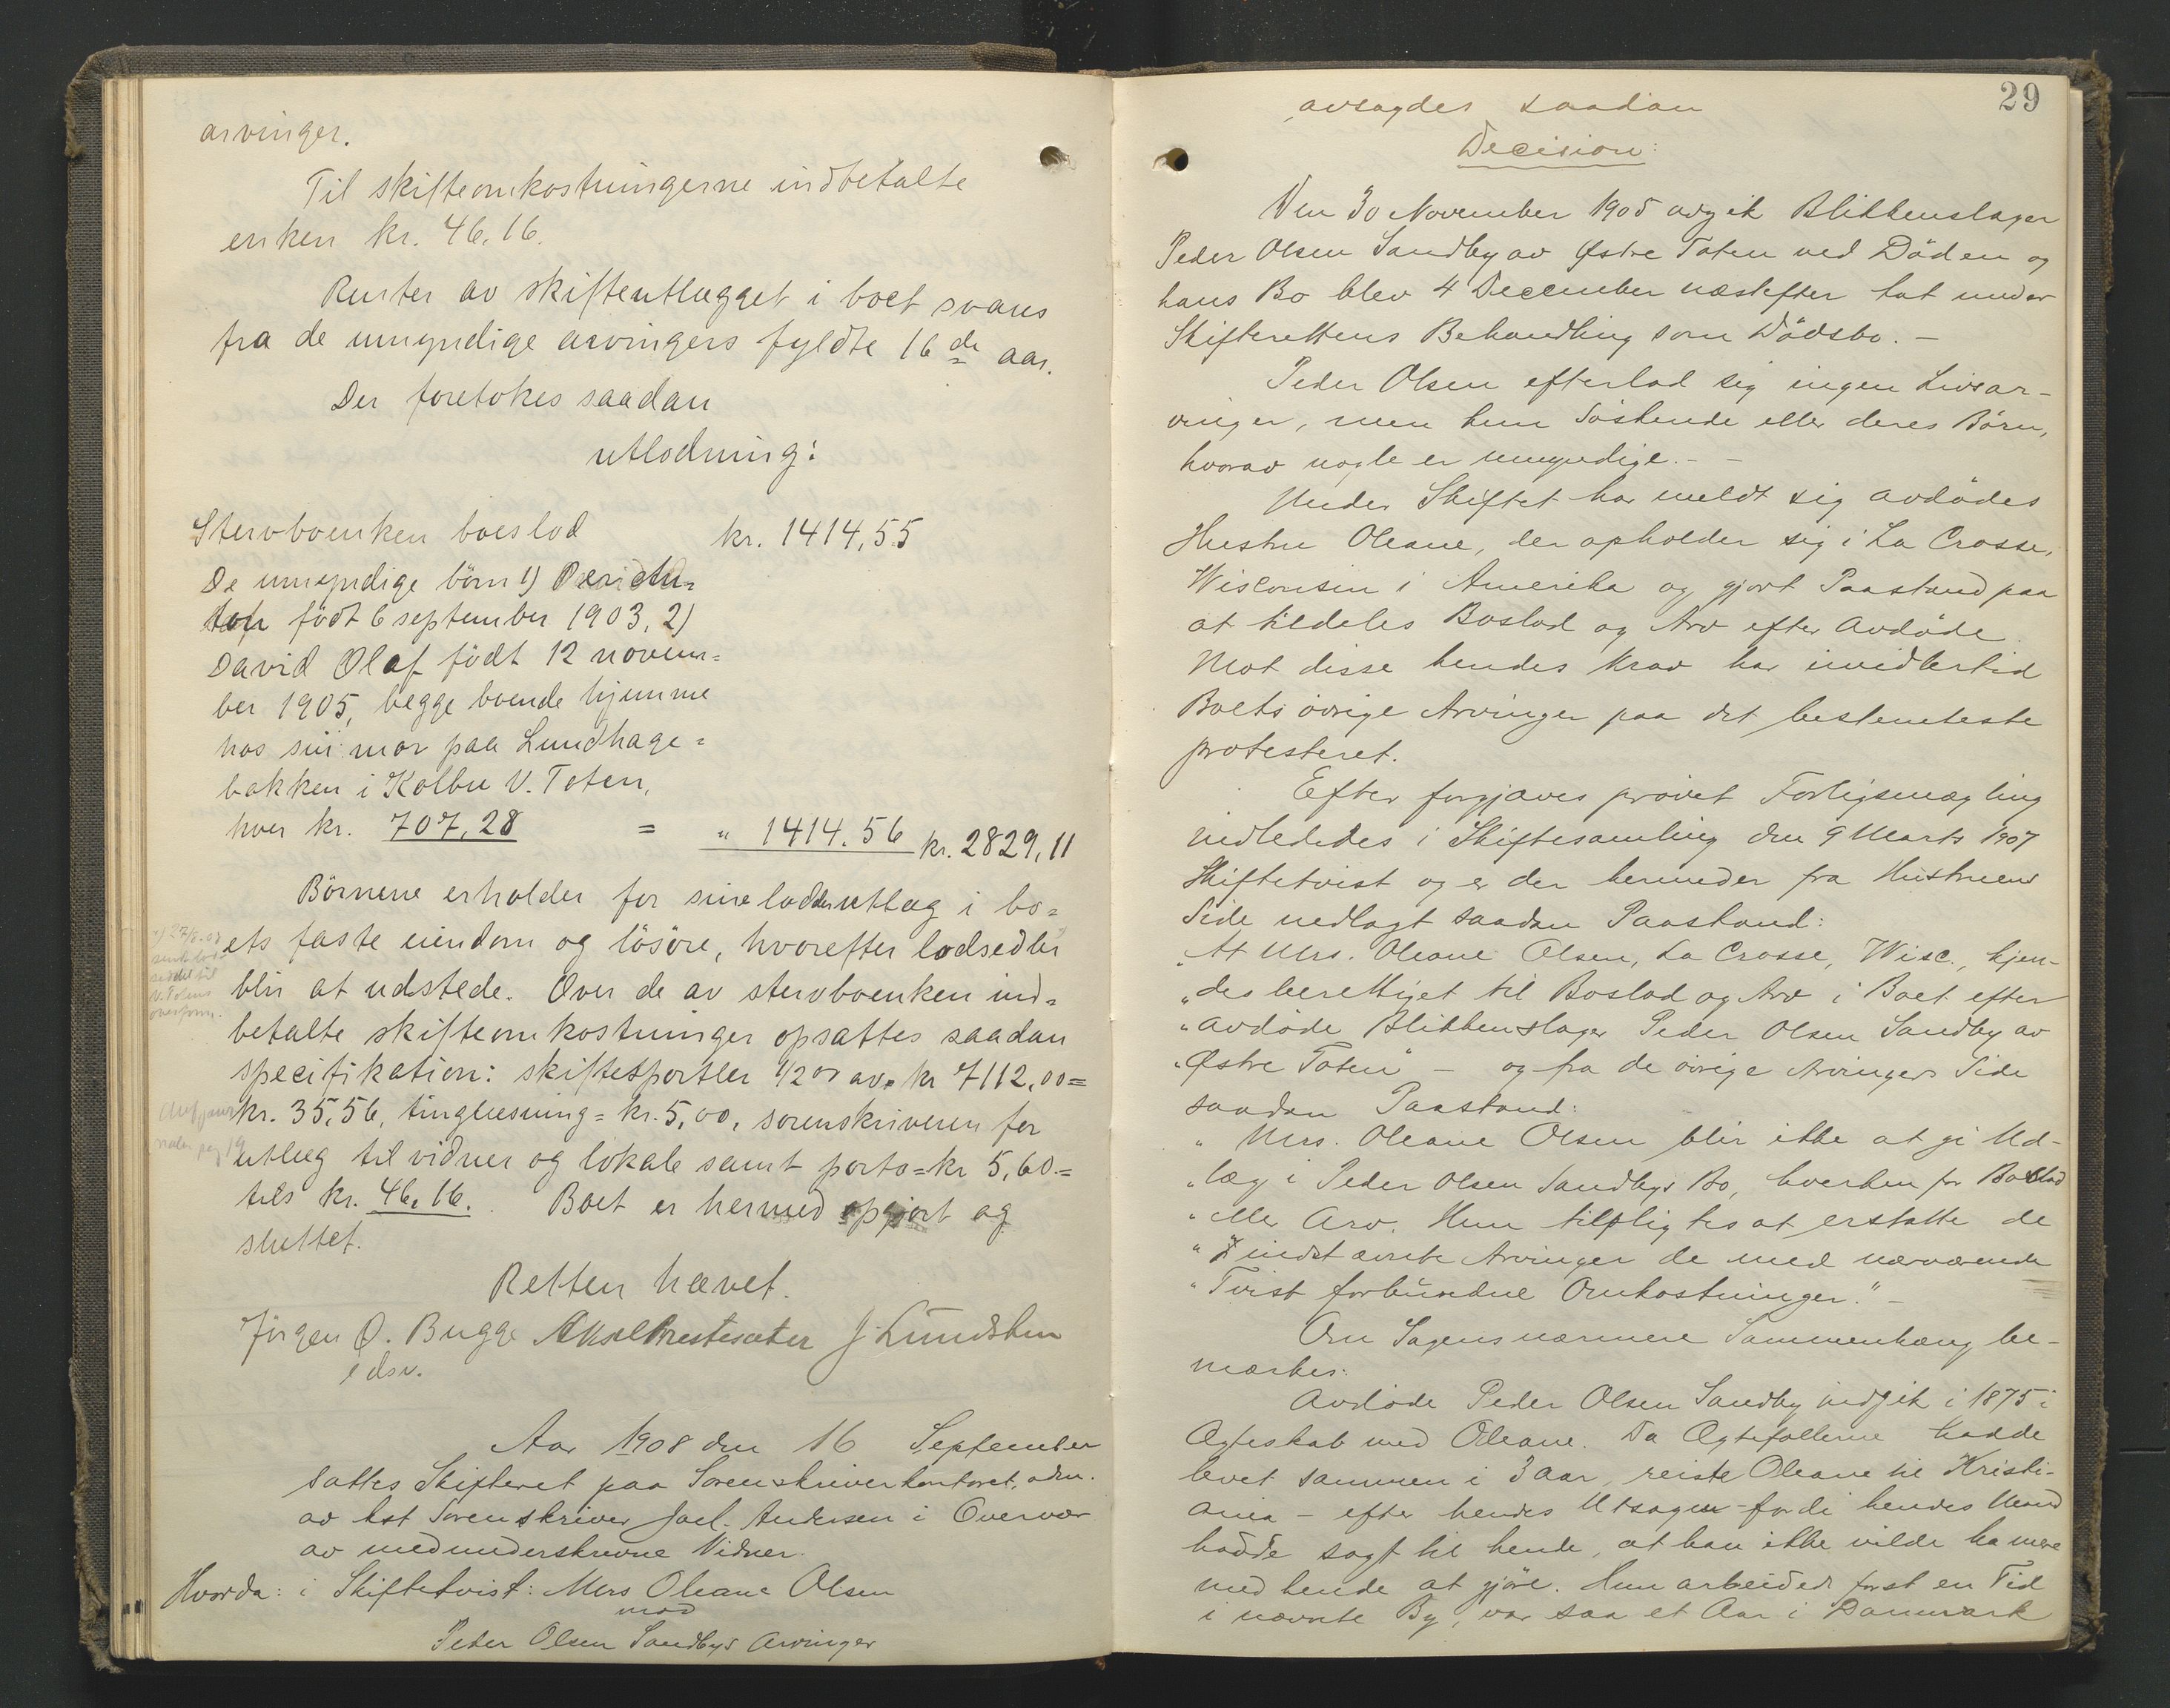 arvinger.
Til skifteomkostningerne indbetalte
enken kr. 46.16.
Renter av skifteutlægget i boet svares
fra de umyndige arvingers fyldte 16de aar.
Der foretokes saadan
utlodning:
Stervboenken boeslod kr. 1414,55
De umyndige börn 1)
födt 6 september 1903, 2)
David Olaf födt 12 novem=
ber 1905, begge boende hjemme
hos sin mor paa Lundhage=
bakken i Kolbu V. Toten,
hver kr. 707,28 = " 1414.56 kr. 2829,11
Börnene erholder for sine lodder utlæg i bo=
ets faste eiendom og lösöre, hvorefter lodsedler
blir at udstede. Over de av stervboenken ind=
betalte skifteomkostninger opsattes saadan
specifikation: skiftesportler 1/2 % av kr 7112,00=
kr. 35,56, tinglæsning= kr. 5,00, sorenskriveren for
utlæg til vidner og lokale samt porto= kr 5,60.=
tils kr. 46,16. Boet er hermed opgjort og
sluttet.
Retten hævet.
Jörgen Ø. Bugge Aksel Prestesæter J. Lundsten
edsv.
Aar 1908 den 16 September
sattes Skifteret paa Sorenskriverkontoret, adm.
av kst Sorenskriver Joel. Andersen i Overvær
av medunderskrevne Vidner.
Hvorda: i Skiftetvist: Mrs Oleane Olsen
mod
Peder Olsen Sandbys Arvinger
29
avsagdes saadan
Decision:
Den 30 November 1905 avgik Blikkenslager
Peder Olsen Sandby av Østre Toten ved Döden og
hans Bo blev 4 December næstefter tat under
Skifterettens Behandling som Dödsbo. –
Peder Olsen efterlod sig ingen Livsar-
vinger, men kun Söskende eller deres Börn,
hvorav nogle er umyndige. –
Under Skiftet har meldt sig avdödes
Hustru Oleane, der opholder sig i La Crosse,
Wisconsin i Amerika og gjort Paastand paa
at tildeles Boslod og Arv efter Avdöde.
Mot disse hendes Krav har imidlertid
Boets övrige Arvinger paa det bestemteste
protesteret.
Efter forgjæves prövet Forligsmægling
indlededes i Skiftesamling den 9 Marts 1907
Skiftetvist og er der herunder fra Hustruens
Side nedlagt saadan Paastand:
"At Mrs. Oleane Olsen, La Crosse, Wisc., kjen-
"des berettiget til Boslod og Arv i Boet efter
"avdöde Blikkenslager Peder Olsen Sandby av
"Östre Toten" – og fra de övrige Arvingers Side
saadan Paastand:
"Mrs. Oleane Olsen blir ikke at gi Ud-
"læg i Peder Olsen Sandbys Bo, hverken for Boslod
"eller Arv. Hun tilpligtes at erstatte de
"indstævnte Arvinger de med nærværende
"Tvist forbundne Omkostninger." –
Om Sagens nærmere Sammenhæng be-
mærkes:
Avdöde Peder Olsen Sandby indgik i 1875 i
Ægteskab med Oleane. Da Ægtefællerne hadde
levet sammen i 3 Aar, reiste Oleane til Kristi-
ania – efter hendes Utsagn – fordi hendes Mand
hadde sagt til hende, at han ikke vilde ha mere
med hende at gjöre. Hun arbeidet först en Tid
i nævnte By, var saa et Aar i Danmark